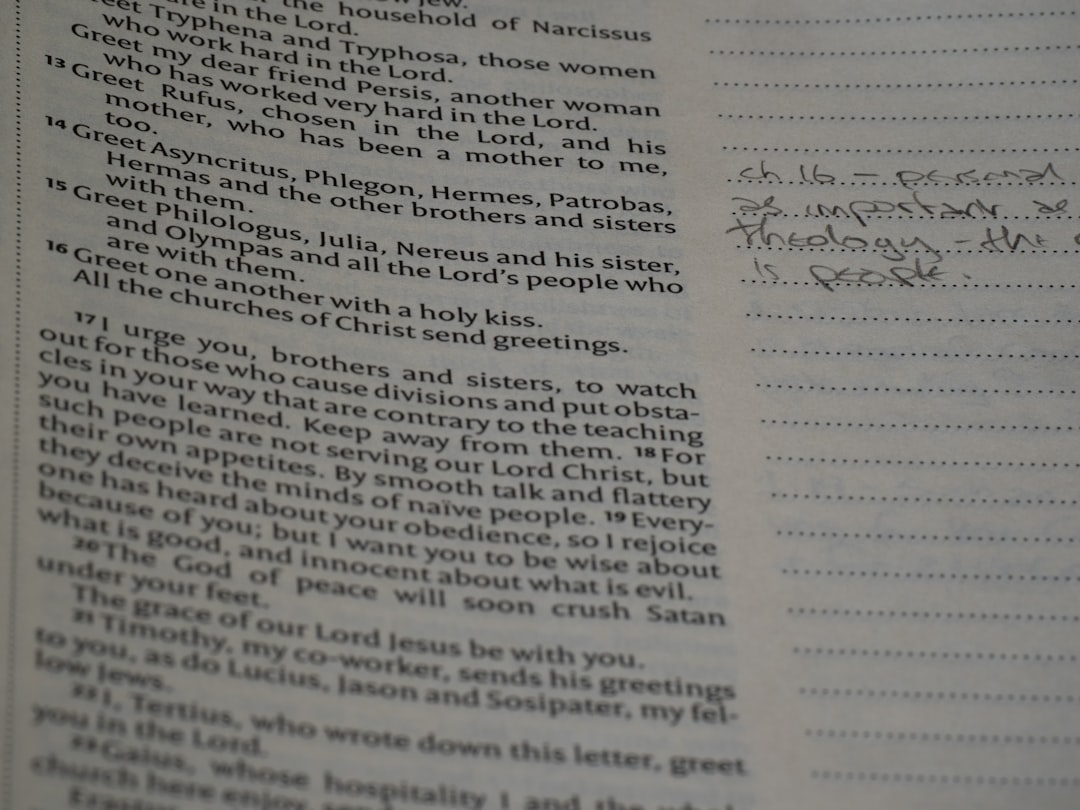 the household of Narcissus
in the Lord.
Tryphena and Tryphosa, those women
who work hard in the Lord.
Greet my dear friend Persis, another woman
who has worked very hard in the Lord.
13 Greet Rufus, chosen in the Lord, and his
mother, who has been a mother to me,
too.
14 Greet Asyncritus, Phlegon, Hermes, Patrobas,
Hermas and the other brothers and sisters
with them.
15 Greet Philologus, Julia, Nereus and his sister,
and Olympas and all the Lord's people who
are with them.
16 Greet one another with a holy kiss.
All the churches of Christ send greetings.
17 I urge you, brothers and sisters, to watch
out for those who cause divisions and put obsta-
cles in your way that are contrary to the teaching
you have learned. Keep away from them. 18 For
such people are not serving our Lord Christ, but
their own appetites. By smooth talk and flattery
they deceive the minds of naïve people. 19 Every-
one has heard about your obedience, so I rejoice
because of you; but I want you to be wise about
what is good, and innocent about what is evil.
20 The God of peace will soon crush Satan
under your feet.
The grace of our Lord Jesus be with you.
21 Timothy, my co-worker, sends his greetings
to you, as do Lucius, Jason and Sosipater, my fel-
low Jews.
22 I, Tertius, who wrote down this letter, greet
you in the Lord.
23 Gaius, whose hospitality I and the
church here enjoy,
ch 16 - personal
as important as
theology - the
is people.